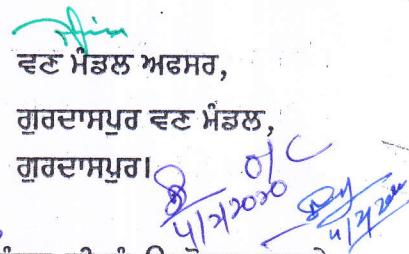 ਵਣ ਮੰਡਲ ਅਫਸਰ,
ਗੁਰਦਾਸਪੁਰ ਵਣ ਮੰਡਲ,
ਗੁਰਦਾਸਪੁਰ।
o/c
4/2/2020
4/2/2020